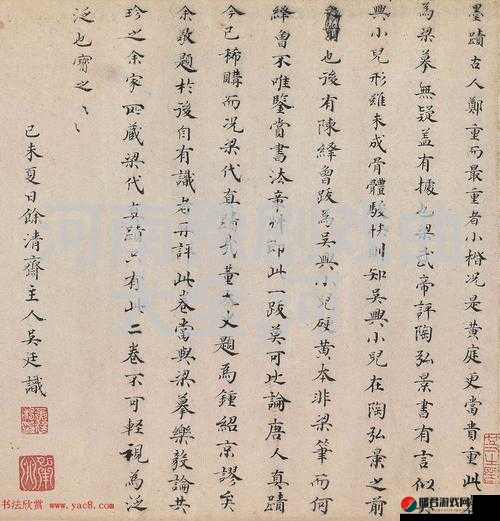 墨蹟古人鄭重而最重者小楷况是黄庭更當貴重此
為梁摹無疑盖有據也梁武帝評陶弘景書有言似吳
興小兒形雖未成骨體駿快明知吳興小兒在陶弘景之前
也後有陳繹曾跋為吳興小兒硬黄本非梁筆而何
繹曾不唯鑒賞書法辛卅即此一跋莫可比論唐人真蹟
今已稀購而况梁代直筆哉董太史題為鍾紹京謬矣
余敢題於後自有識者再評此卷當與梁摹樂毅論共
珍之余家四藏梁代真蹟只有此二卷不可輕視為泛
泛也寶之
己未夏日餘清齋主人吳廷識
书法欣赏 www.yac8.com